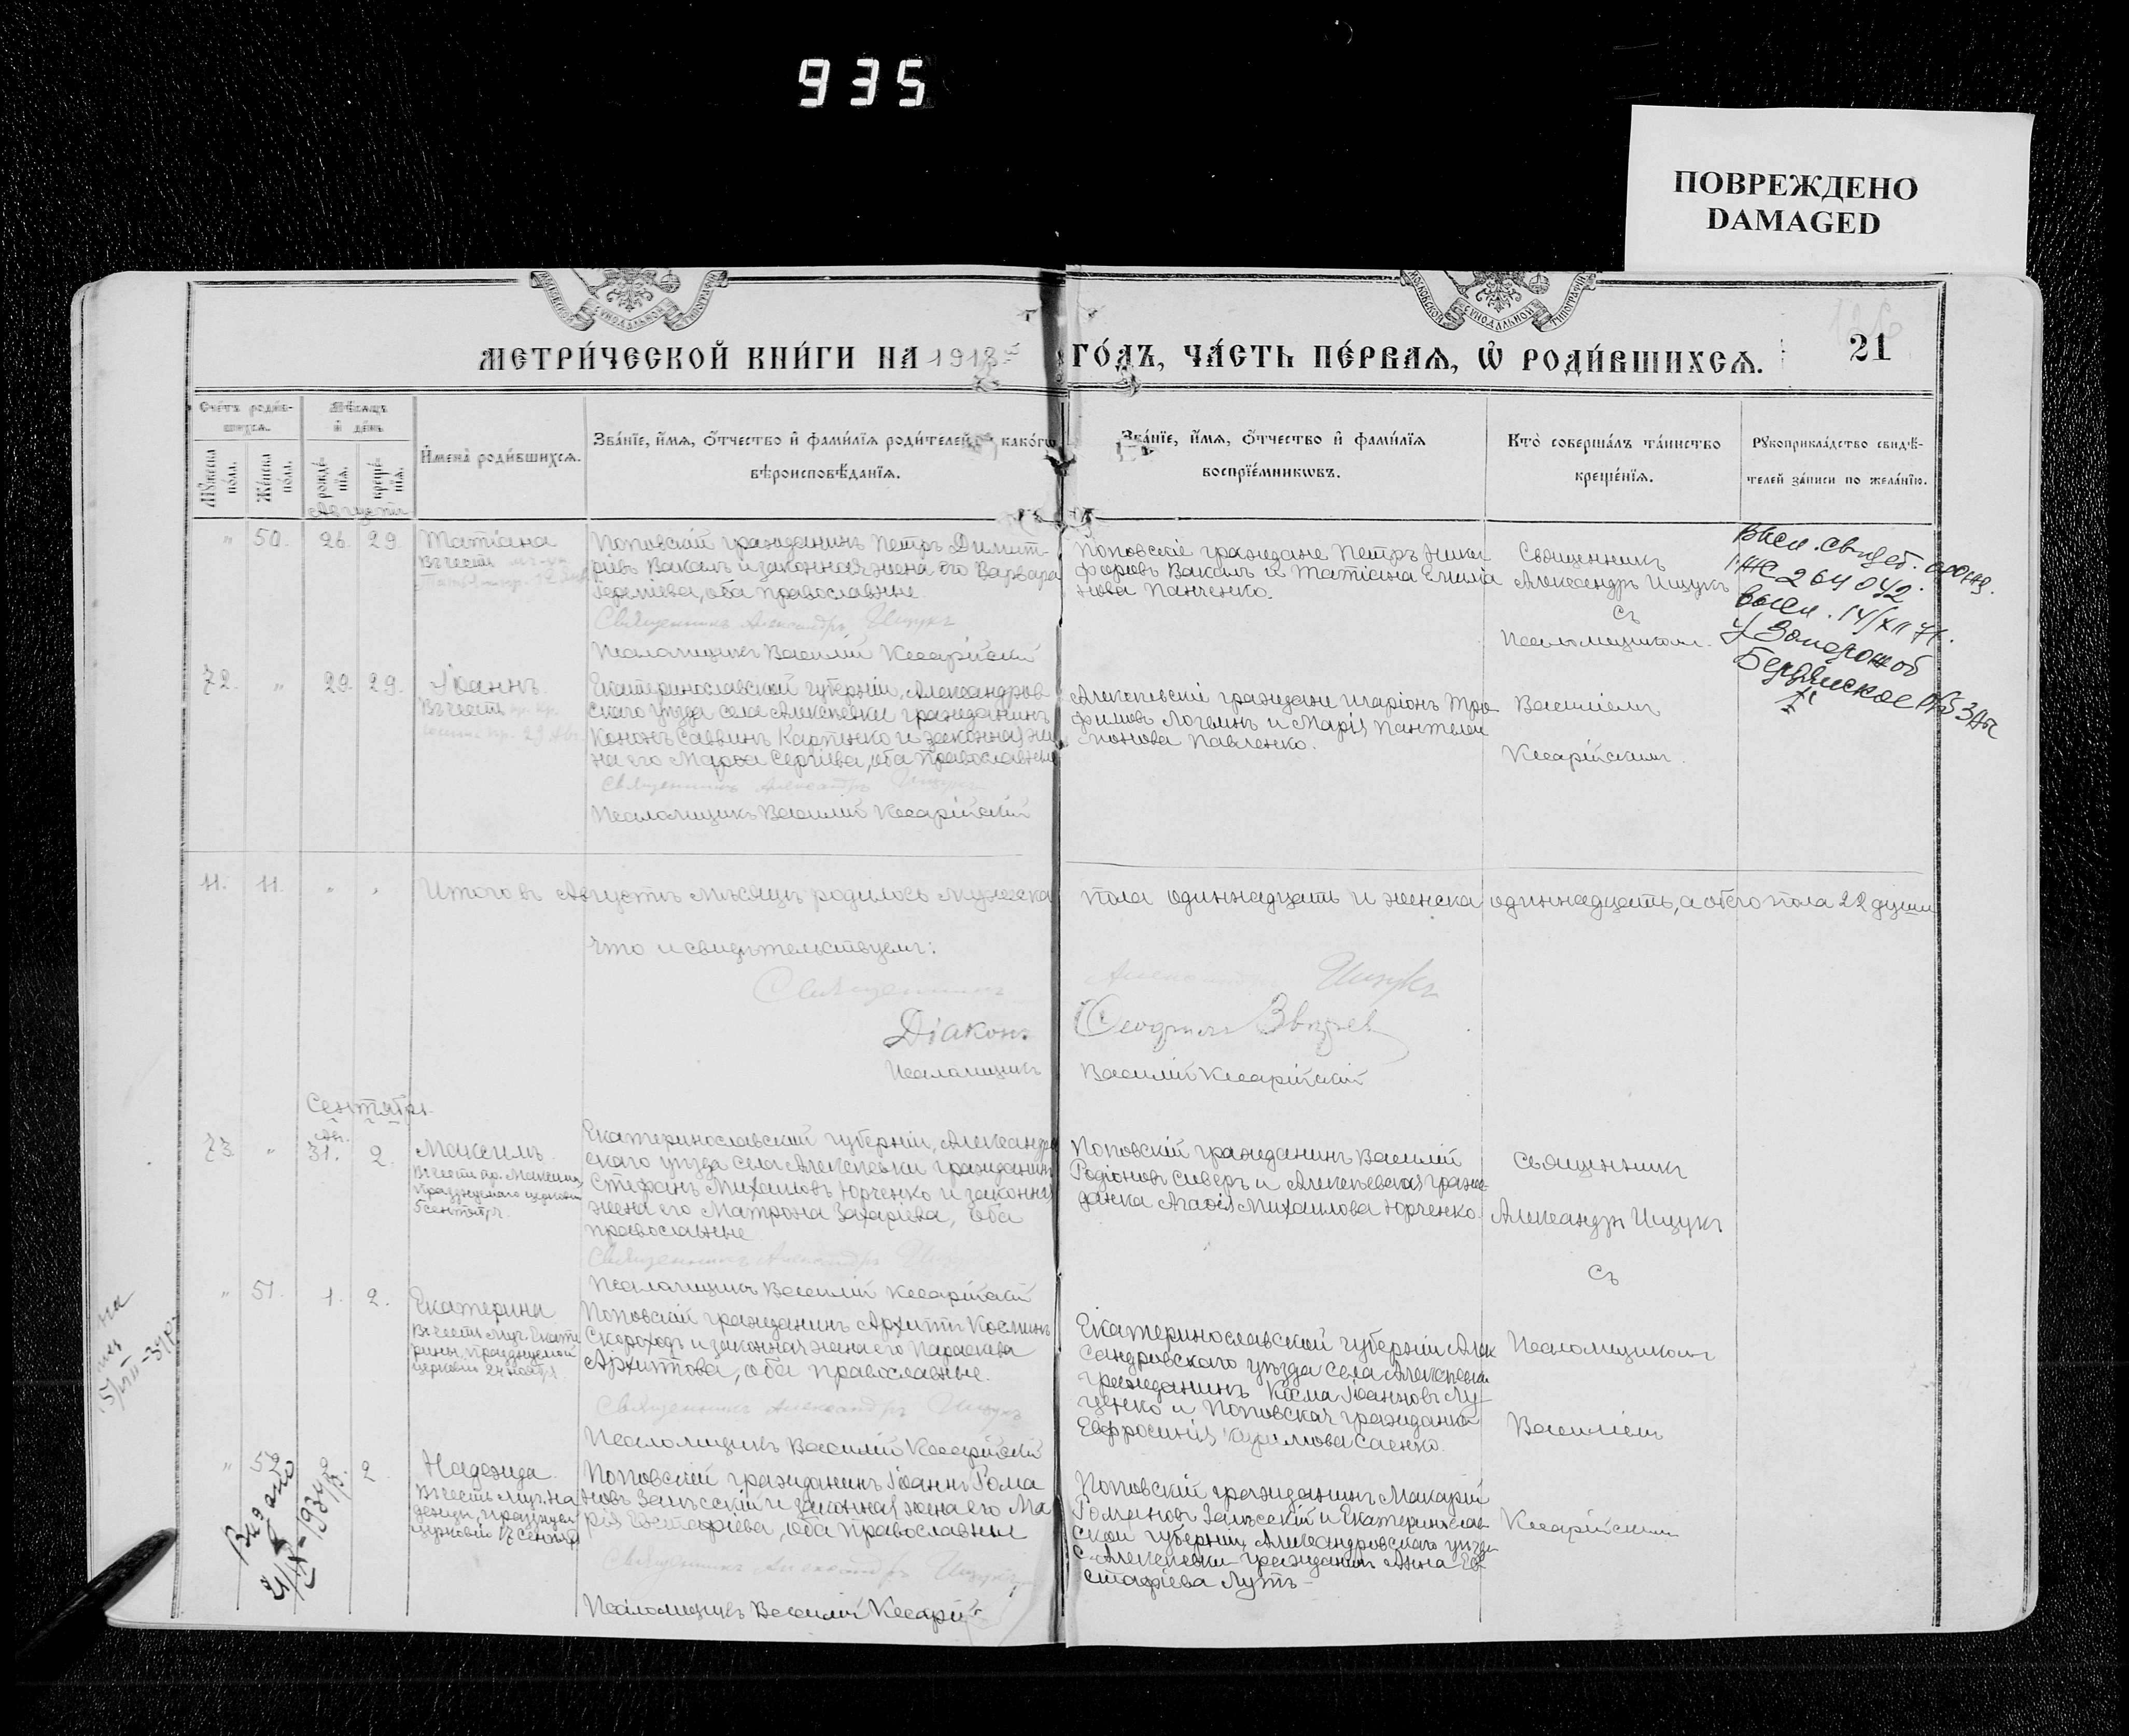 935
ПОВРЕЖДЕНО
DAMAGED
МЕТРИ́ЧЕСКОЙ КНИ́ГИ НА 1918 ГО́ДЪ, ЧА́СТЬ ПЕ́РВАЯ, Ѡ҆ РОДИ́ВШИХСЯ.
21
Сче́тъ роди́в-
шихся.
Мѣ́сяцъ
и҆ де́нь
Му́жеска по́ла.
Же́нска по́ла.
рожде́-
нїя.
креще́-
нїя.
И҆мена̀ роди́вшихся.
Зва́нїе, и҆́мя, ѻ҆́тчество и҆ фами́лїя роди́телей, и҆ како́гѡ
вѣроисповѣ́данїя.
Зва́нїе, и҆́мя, ѻ҆́тчество и҆ фами́лїя
воспрїе́мниковъ.
Кто̀ соверша́лъ та́инство
креще́нїя.
Рукоприкла́дство свидѣ́-
телей за́писи по жела́нїю.
Августъ
" 50. 26. 29.
Татіана
Въ честь
Поповскій гражданинъ Петръ Димит-
ріевъ Вакалъ и законная жена его Варвара
Георгіева, оба православные.
Священникъ Александръ Ищукъ
Псаломщикъ Василій Кесарійскій
Поповскіе граждане Петръ Ники-
форовъ Вакалъ и Татіана Емилiа
нова Панченко.
Священникъ
Александръ Ищукъ
съ
Псаломщикомъ
Высл. свидет.
264042.
высл. 14/XII 71.
Бердянское
72. " 29. 29.
Іоаннъ.
Въ честь
29 Авг.
Екатеринославской губерніи, Александров-
скаго уѣзда села Алексѣевки гражданинъ
Кононъ Саввинъ Карпенко и законная же
на его Марѳа Сергіева, оба православные
Священникъ Александръ Ищукъ
Псаломщикъ Василій Кесарійскій
Алексѣевскіе граждане Иларіонъ Тро-
фимовъ Логвинъ и Марія Пантелеи
монова Павленко.
Василіемъ
Кесарійскимъ.
11. 11. " "
Итого въ Августѣ мѣсяцѣ родилось мужеска пола одиннадцать и женска одиннадцать, а обего пола 22 души
Что и свидѣтельствуемъ:
Священникъ Александръ Ищукъ
Діаконъ
Псаломщикъ Василій Кесарійскій
Сентябрь
73. " Авг. 31. 2.
Максимъ.
Въ честь пр. Максима
празднуемаго церковію
5 сентября.
Екатеринославской губерніи, Александров
скаго уѣзда села Алексѣевки гражданинъ
Стефанъ Михаиловъ Юрченко и законная
жена его Матрона Захаріева, оба
православные
Священникъ Александръ Ищукъ
Псаломщикъ Василій Кесарійскій
Поповскій гражданинъ Василій
Родіоновъ Сиверъ и Алексѣевская граж-
данка Агаѳія Михаилова Юрченко.
Священникъ
Александръ Ищукъ
съ
" 51. 1. 2.
Екатерина
Въ честь муч. Екате
рины, празднуемой
церковію 24 ноября.
Поповскій гражданинъ Архиппъ Косминъ
Скороходъ и законная жена его Параскева
Архиппова, оба православные.
Священникъ Александръ Ищукъ
Псаломщикъ Василій Кесарійскій
Екатеринославской губерніи Алек
сандровскаго уѣзда села Алексѣевки
гражданинъ Косма Іоанновъ Лу-
ценко и Поповская гражданка
Евфросинія Саенко.
Псаломщикомъ
Василіемъ
" 52. 2.
Надежда.
Въ честь муч. На
дежды, празднуем
церковію 17 сентяб
Поповскій гражданинъ Іоаннъ Рома
новъ Залѣсскій и законная жена его Ма
рія Евстафіева, оба православные
Священникъ Александръ Ищукъ
Псаломщикъ Василій Кесарій
Поповскій гражданинъ Макарій
Романовъ Залѣсскій и Екатеринослав-
ской губерніи Александровскаго уѣзда
с. Алексѣевки гражданка Анна Ев-
стафіева Лутъ
Кесарійскимъ